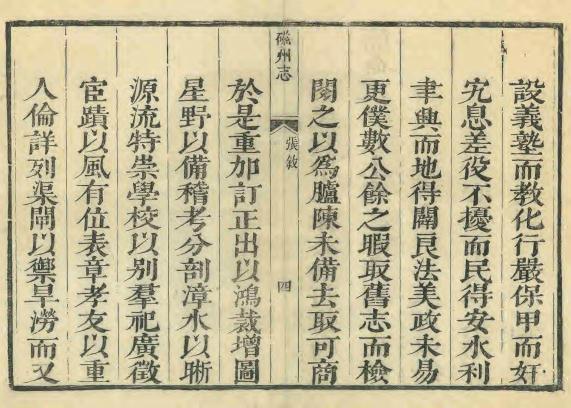 設義塾而教化行嚴保甲而奸
宄息差役不擾而民得安水利
聿興而地得闢良法美政未易
更僕數公餘之暇取舊志而檢
閱之以為臚陳未備去取可商
磁州志
張敘
四
於是重加訂正出以鴻裁增圖
星野以備稽考分剖漳水以晰
源流特崇學校以別羣祀廣徵
宦蹟以風有位表章孝友以重
人倫詳列渠閘以禦旱澇而又